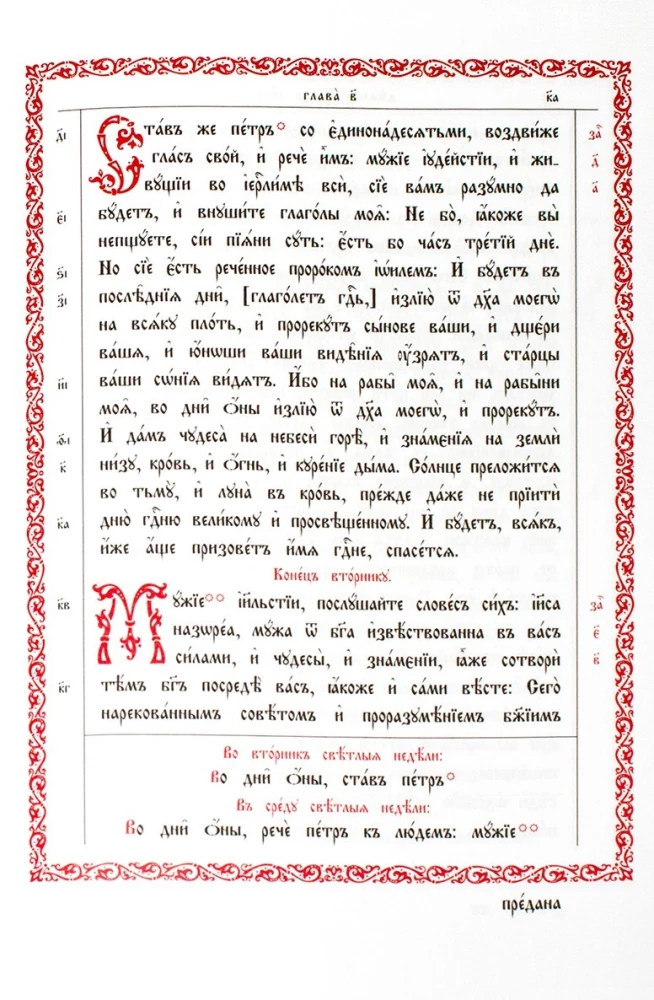 глава̀ в҃
к҃а
Ста́въ же пе́тръ со є҆диномна́десѧтьми, воздви́же
гла́съ сво́й, и҆ речѐ и҆̀мъ: мꙋ́жїе і҆ꙋде́йстїи, и҆ жи-
вꙋ́щїи во і҆ерⷭ҇ли́мѣ всѝ, сїѐ ва́мъ разꙋ́мно да
бꙋ́детъ, и҆ внꙋши́те глаго́лы моѧ̑: Не бо̀, ꙗ҆́коже вы̀
непщꙋ́ете, сі́и пїѧ́ни сꙋ́ть: є҆́сть бо ча́съ тре́тїй днѐ.
Но сїѐ є҆́сть рече́нное прⷪ҇ро́комъ і҆ѡи́лемъ: И҆ бꙋ́детъ въ
послѣ̑днїѧ дни̑, [глаго́летъ гдⷭ҇ь,] и҆злїю̀ ѿ дх҃а моегѡ̀
на всѧ́кꙋ пло́ть, и҆ прорекꙋ́тъ сы́нове ва́ши, и҆ дщє́ри
ва́шѧ, и҆ ю҆́нѡши ва́ши видѣ̑нїѧ ᲂу҆́зрѧтъ, и҆ ста́рцы
ва́ши сѡ́нїѧ ви́дѧтъ. И҆́бо на рабы̑ моѧ̑, и҆ на рабы̑ни
моѧ̑, во дни̑ ѻ҆́ны и҆злїю̀ ѿ дх҃а моегѡ̀, и҆ прорекꙋ́тъ.
И҆ да́мъ чꙋдеса̀ на небесѝ горѣ̀, и҆ зна́мєнїѧ на землѝ
ни́зꙋ, кро́вь, и҆ ѻ҆́гнь, и҆ кꙋре́нїе ды́ма. Со́лнце преложи́тсѧ
во тьмꙋ̀, и҆ лꙋна̀ въ кро́вь, пре́жде да́же не прїитѝ
дню̀ гдⷭ҇ню вели́комꙋ и҆ просвѣще́нномꙋ. И҆ бꙋ́детъ, всѧ́къ,
и҆́же а҆́ще призове́тъ и҆́мѧ гдⷭ҇не, спасе́тсѧ.
Коне́цъ вто́рникꙋ.
Мꙋ́жїе і҆и҃льстїи, послꙋ́шайте слове́съ си́хъ: і҆и҃са
назѡре́а, мꙋ́жа ѿ бг҃а и҆звѣ́ствованна въ ва́съ
си́лами, и҆ чꙋдесы̀, и҆ зна́мєнїи, ꙗ҆̀же сотворѝ
тѣ́мъ бг҃ъ посредѣ̀ ва́съ, ꙗ҆́коже и҆ са́ми вѣ́сте: Сего̀
нарекова́ннымъ совѣ́томъ и҆ проразꙋмѣ́нїемъ бж҃їимъ
Во вто́рникъ свѣ́тлыѧ недѣ́ли:
Во дни̑ ѻ҆́ны, ста́въ пе́тръ
Въ сре́дꙋ свѣ́тлыѧ недѣ́ли:
Во дни̑ ѻ҆́ны, речѐ пе́тръ къ лю́демъ: мꙋ́жїе
пре́дана